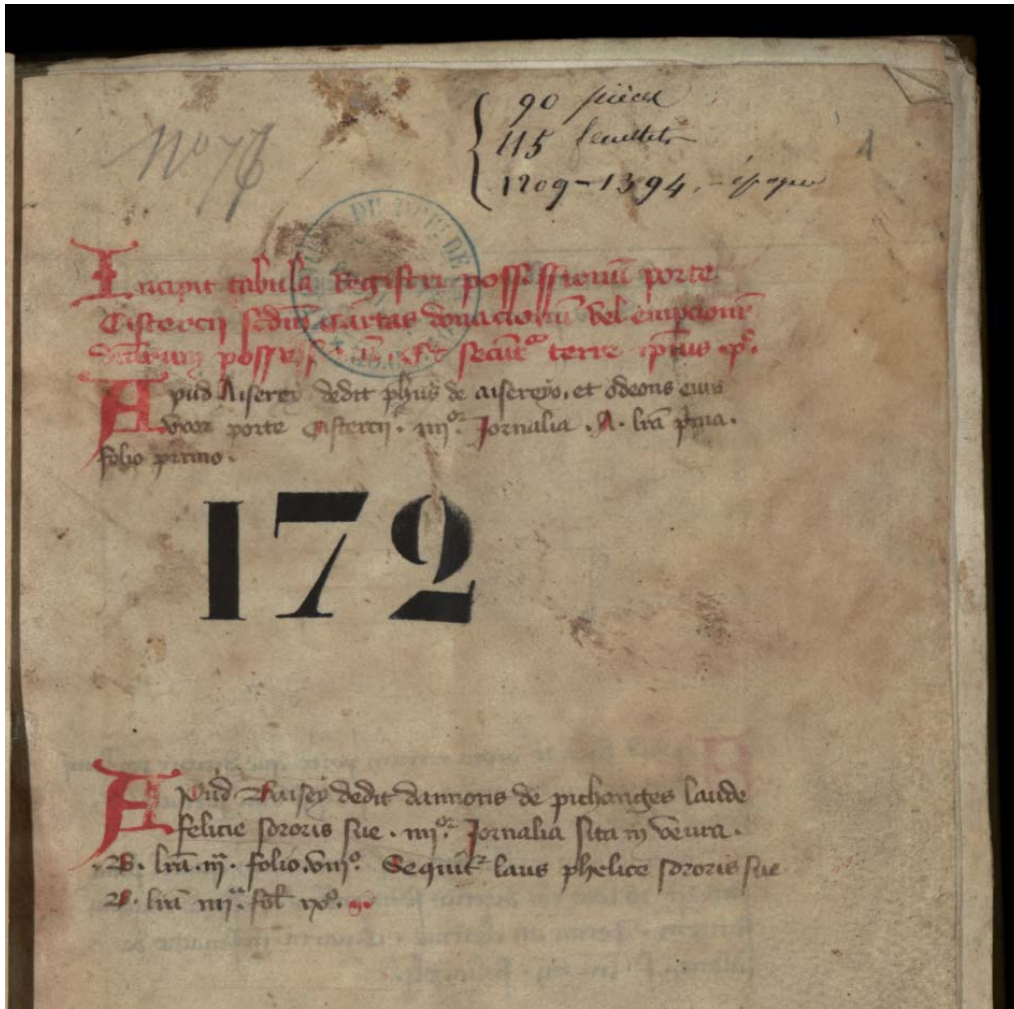 No 76
90 pièces
115 feuillets
1209-1394. - époque
1
Incipit tabula Registri possessionū porte
Cistercii scdm cartas donacionū vel empcionū
possess terre
Apud Aiserey dedit phus de aisereyo. et odeons eius
uxor porte Cistercii. iiiior. Jornalia. A. lrā pma.
folio primo.
172
Apud Buisey dedit dannotis de pichanges laude
felicie sororis sue. iiiior. Jornalia sita in
.B. lrā. iij. folio. viiio. Sequit laus phelice sororis sue
B. lrā iiij. fol ixo.